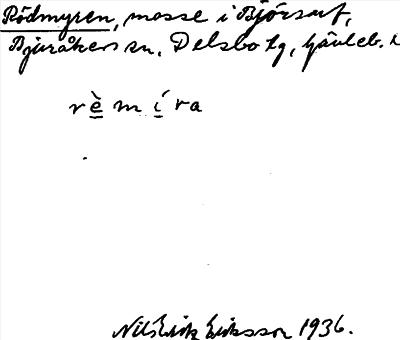 Rödmyren, mosse i Björsarf,
Bjuråkers sn, Delsbo tg, Gävleb. l
rè m í ra
Nils Erik Eriksson 1936.